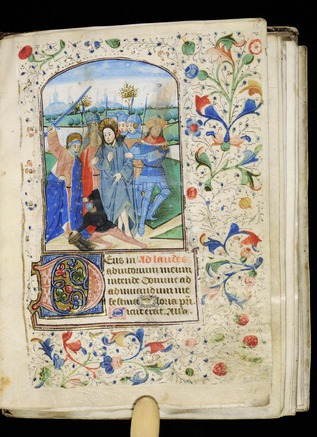 Eus in Ad laudes
adiutorium meum
intende Domine ad
adiuuandum me
festina Gloria pri
sicut erat. Alla.